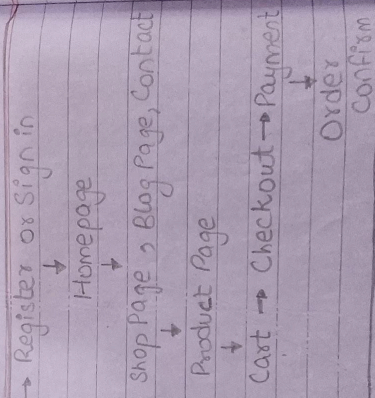 → Register or Sign in
↓
Homepage
↓
Shop Page, Blog Page, Contact
↓
Product Page
↓
Cart → Checkout → Payment
↓
Order
Confirm